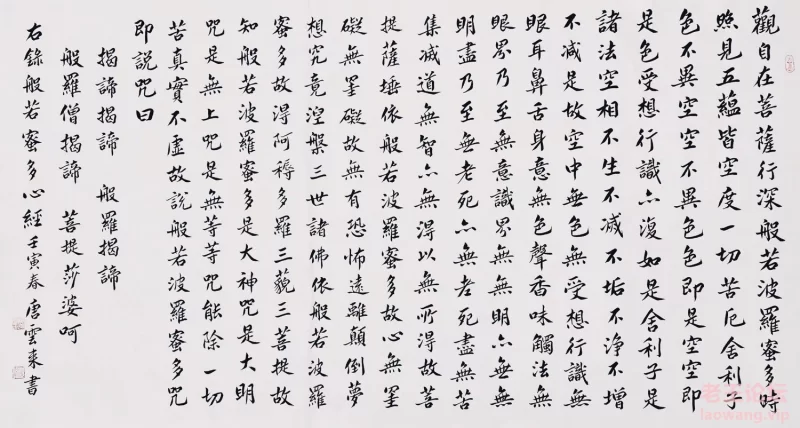 觀自在菩薩行深般若波羅蜜多時
照見五蘊皆空度一切苦厄舍利子
色不異空空不異色色即是空空即
是色受想行識亦復如是舍利子是
諸法空相不生不滅不垢不浄不增
不減是故空中無色無受想行識無
眼耳鼻舌身意無色聲香味觸法無
眼界乃至無意識界無無明亦無無
明盡乃至無老死亦無老死盡無苦
集滅道無智亦無得以無所得故菩
提薩埵依般若波羅蜜多故心無罣
礙無罣礙故無有恐怖遠離顛倒夢
想究竟涅槃三世諸佛依般若波羅
蜜多故得阿耨多羅三藐三菩提故
知般若波羅蜜多是大神咒是大明
咒是無上咒是無等等咒能除一切
苦真實不虛故說般若波羅蜜多咒
即說咒曰
揭諦揭諦 般羅揭諦
般羅僧揭諦 菩提莎婆呵
右錄般若蜜多心經 壬寅春 唐雲來書
老王论坛
laowang.vip